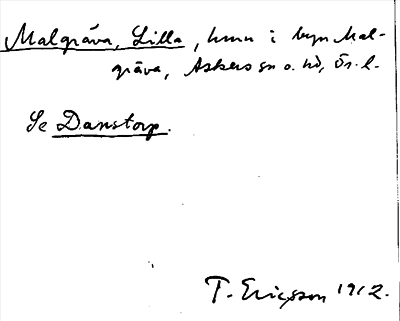 Malgräva, Lilla, hmn i byn Mal-
gräva, Askers sn o. hd, Ör. l.
Se Danstorp.
T. Ericsson 1912.